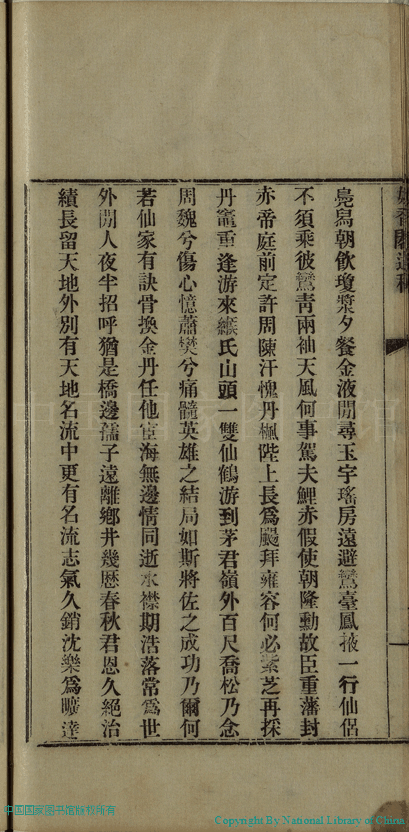 鳧舄朝飲瓊漿夕餐金液閒尋玉宇瑤房遠避鸞臺鳳掖一行仙侶
不須乘彼鸞青兩袖天風何事駕夫鯉赤假使朝隆勳故臣重藩封
赤帝庭前定許周陳汗愧丹楓陛上長為颺拜雍容何必紫芝再採
丹竈重逢游來緱氏山頭一雙仙鶴游到茅君嶺外百尺喬松乃念
周魏兮傷心憶蕭樊兮痛髓英雄之結局如斯將佐之成功乃爾何
若仙家有訣骨換金丹任他宦海無邊情同逝水襟期浩落常為世
外閒人夜半招呼猶是橋邊孺子遠離鄉井幾歷春秋君恩久絕治
績長留天地外別有天地名流中更有名流志氣久銷沈樂為曠達
中国国家图书馆版权所有
Copyright By National Library of China